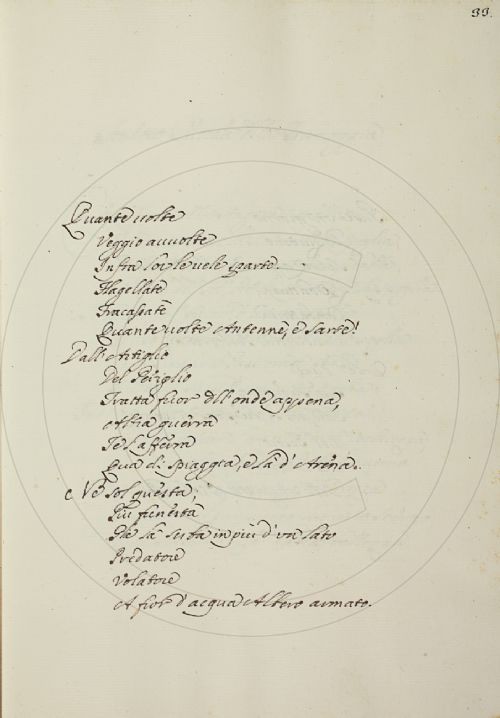 33.
Quante volte
Veggio avvolte
Infra le vele sparte
Flagellate
Fracassate
Quante volte Antenne, e sarte!
Dall'Artiglio
Del Periglio
Tratta fuor dell'onde appena,
Altra guerra
Te l'afferra
Qua di spiaggia, e là d'Arena.
Ne sol questa;
Più funesta
in più d'un lato
Predatore
Volatore
A fior d'acqua Altero armato.